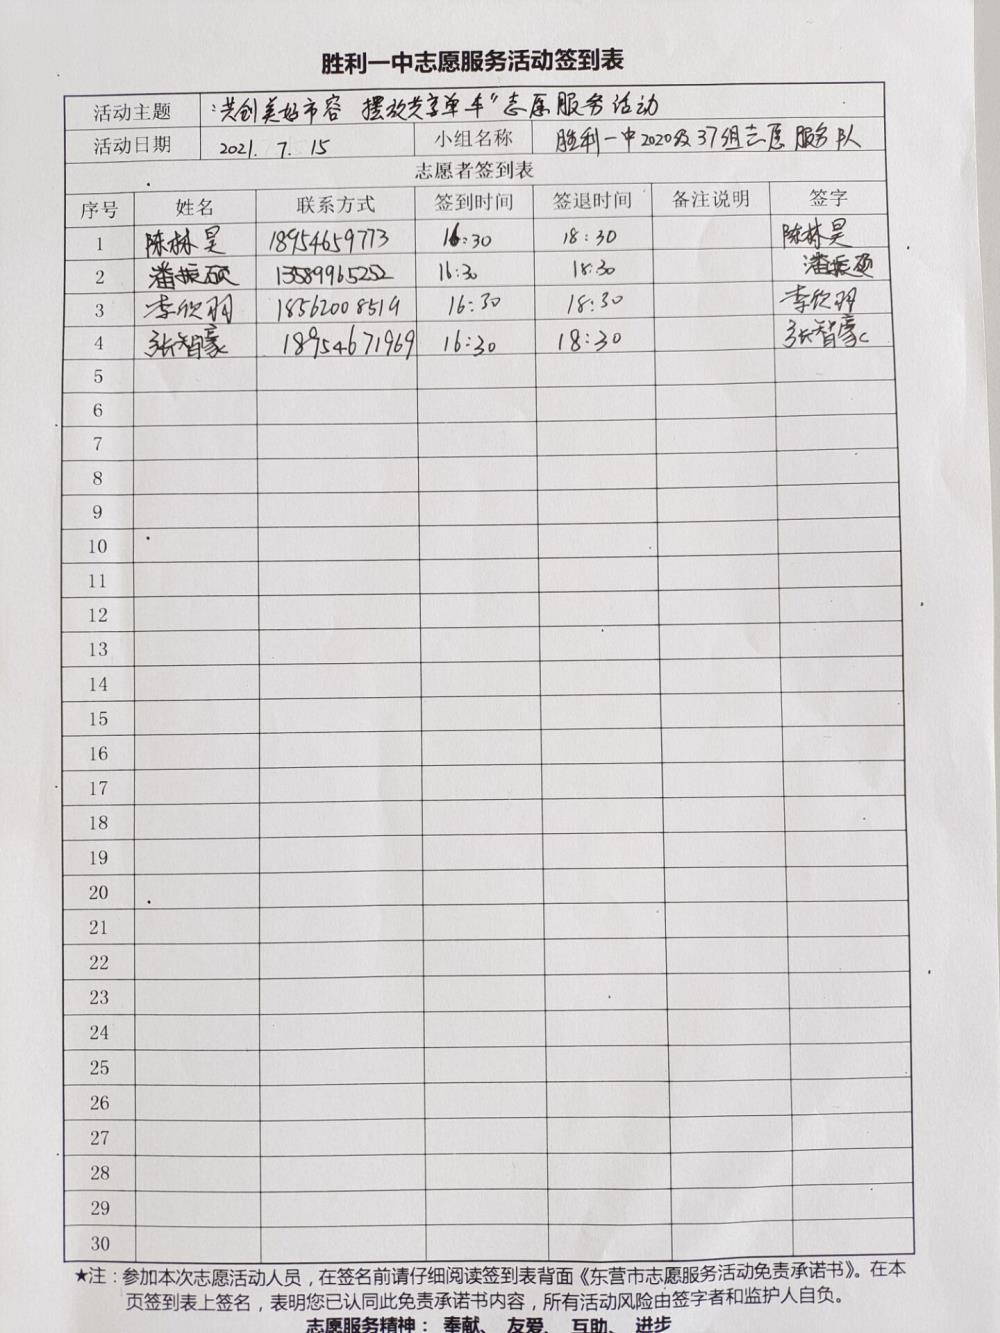 胜利一中志愿服务活动签到表
活动主题 “共创美好市容 摆放共享单车”志愿服务活动
活动日期 2021. 7. 15 小组名称 胜利一中2020级37组志愿服务队
志愿者签到表
序号 姓名 联系方式 签到时间 签退时间 备注说明 签字
1 陈林昊 18954659773 16:30 18:30 陈林昊
2 潘振硕 13589965252 16:30 18:30 潘振硕
3 李欣羽 18562008519 16:30 18:30 李欣羽
4 张智豪 18954671969 16:30 18:30 张智豪
5
6
7
8
9
10
11
12
13
14
15
16
17
18
19
20
21
22
23
24
25
26
27
28
29
30
★注：参加本次志愿活动人员，在签名前请仔细阅读签到表背面《东营市志愿服务活动免责承诺书》。在本
页签到表上签名，表明您已认同此免责承诺书内容，所有活动风险由签字者和监护人自负。
志愿服务精神： 奉献、 友爱、 互助、 进步